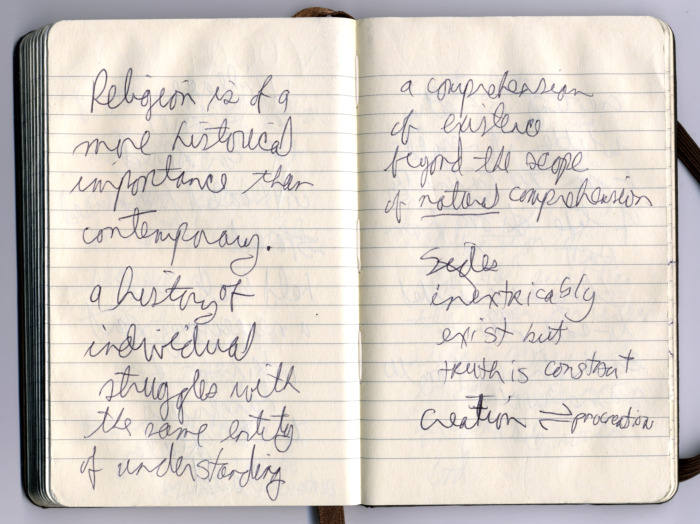 Religion is of a
more historical
importance than
contemporary.
a history of
individual
struggles with
the same entity
of understanding
a comprehension
of existence
beyond the scope
of natural comprehension
inextricably
exist but
truth is constant
Creation ⇌ procreation